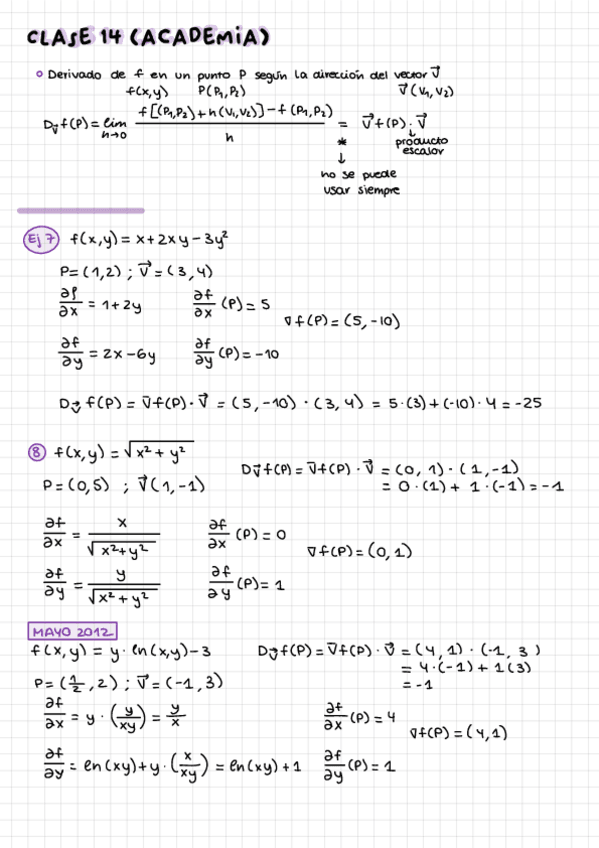 CLASE 14 (ACADEMIA)
Derivado de f en un punto P según la dirección del vector V⃗
f(x,y) P(P₁,P₂) V⃗(V₁,V₂)
D_v⃗ f(P) = lim h→0 f[(P₁,P₂)+h(V₁,V₂)] - f(P₁,P₂) / h = ∇⃗f(P) · V⃗
* producto escalar
↓
no se puede
usar siempre
Ej 7 f(x,y) = x+2xy-3y²
P=(1,2) ; V⃗=(3,4)
∂f/∂x = 1+2y ∂f/∂x (P) = 5
∇f(P) = (5,-10)
∂f/∂y = 2x-6y ∂f/∂y (P) = -10
D_v⃗ f(P) = ∇f(P) · V⃗ = (5,-10) · (3,4) = 5·(3)+(-10)·4 = -25
8 f(x,y) = √(x²+y²)
D_v⃗ f(P) = ∇f(P) · V⃗ = (0,1) · (1,-1)
P=(0,5) ; V⃗(1,-1) = 0·(1) + 1·(-1) = -1
∂f/∂x = x/√(x²+y²) ∂f/∂x (P) = 0
∇f(P) = (0,1)
∂f/∂y = y/√(x²+y²) ∂f/∂y (P) = 1
MAYO 2012
f(x,y) = y·ln(x,y)-3 D_v⃗ f(P) = ∇f(P) · V⃗ = (4,1) · (-1,3)
= 4·(-1) + 1(3)
P=(1/2,2) ; V⃗=(-1,3) = -1
∂f/∂x = y·(y/xy) = y/x ∂f/∂x (P) = 4
∇f(P) = (4,1)
∂f/∂y = ln(xy)+y·(x/xy) = ln(xy)+1 ∂f/∂y (P) = 1